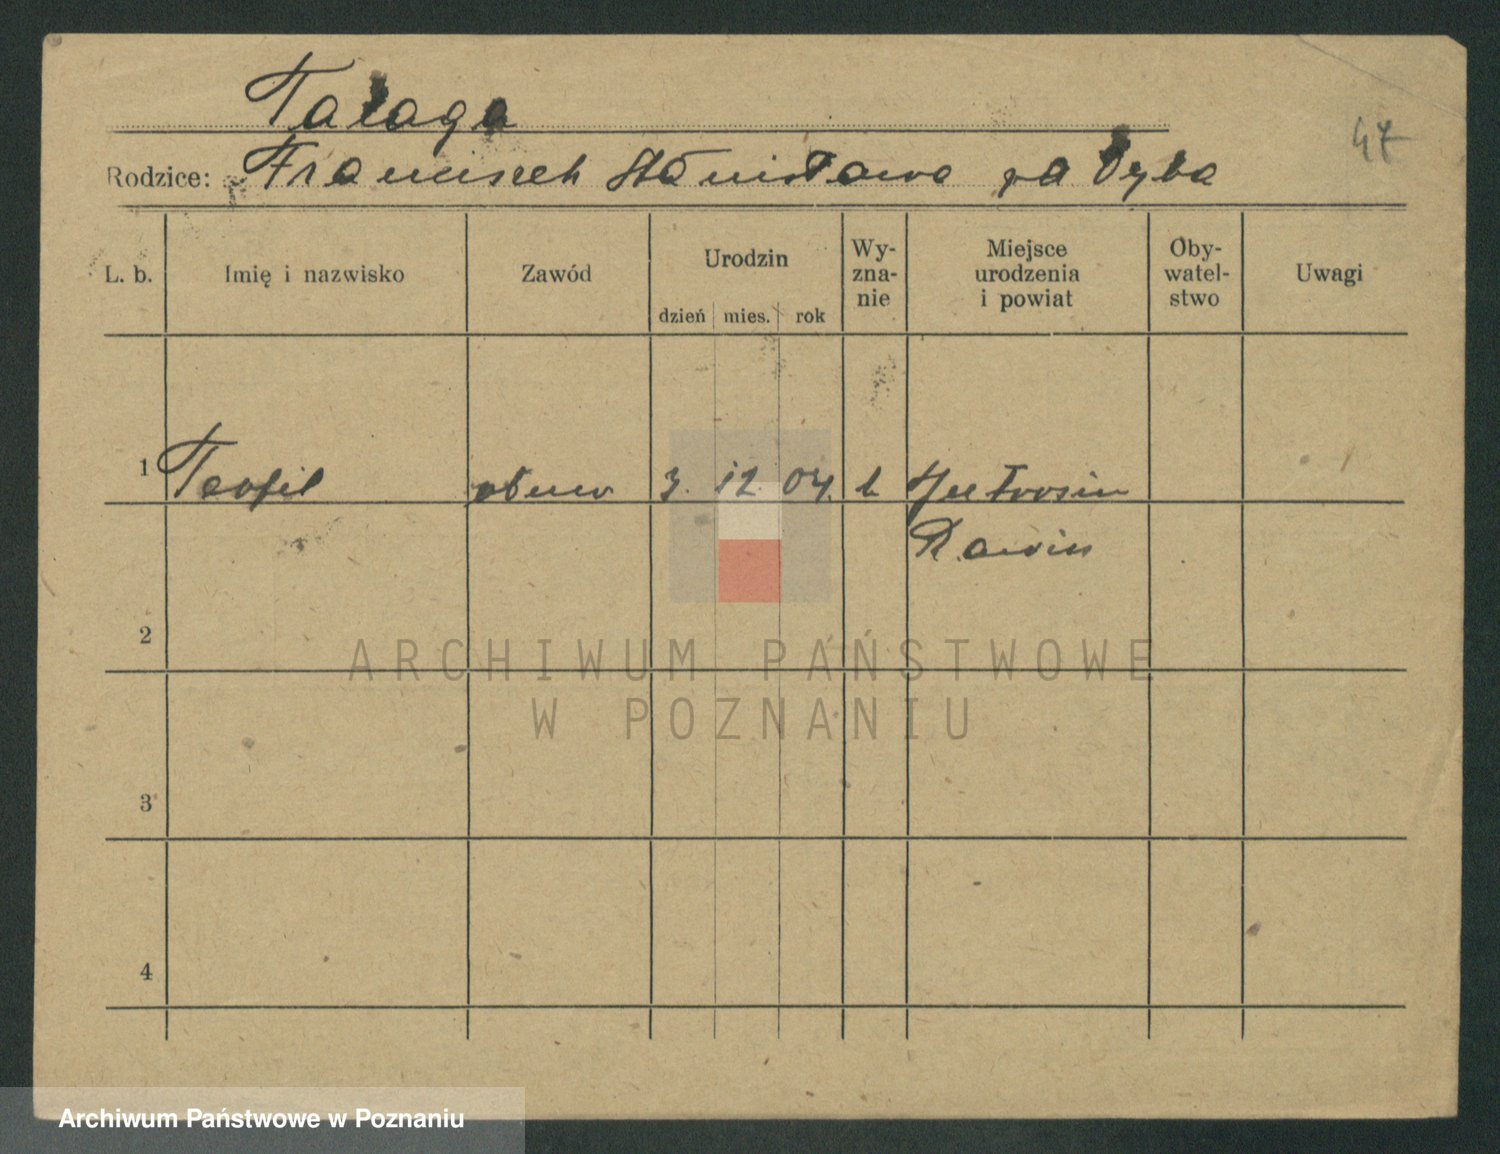 Tałaga
47
Rodzice: Franciszek Stanisława
L. b. Imię i nazwisko Zawód Urodzin dzień mies. rok Wy-zna-nie Miejsce urodzenia i powiat Oby-watel-stwo Uwagi
1 Teofil 3. 12. 04.
Rawicz
2
3
4
ARCHIWUM PAŃSTWOWE
W POZNANIU
Archiwum Państwowe w Poznaniu